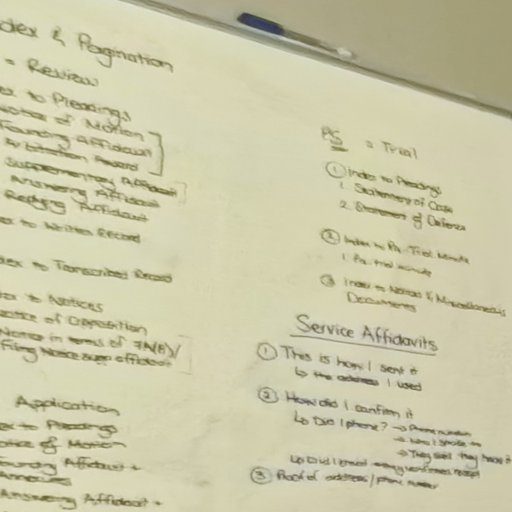 dex & Pagination
= Review
ex to Pleadings
Notice of Motion
Founding Affidavit
Arbitration Award
Supplementary Affidavit
Answering Affidavit
Replying Affidavit
ex to Written Record
dex to Transcribed Record
dex to Notices
Notice of Opposition
Notice in terms of 7A(8)/
Filing Notice supp affidavit
Application
ex to Pleadings
otice of Motion
ounding Affidavit +
Annexures
Answering Affidavit +
PS = Trial
① Index to Pleadings
1. Statement of Case
2. Statement of Defence
② Index to Pre-Trial Minute
1. Pre-trial minute
③ Index to Notices & Miscellaneous
Documents
Service Affidavits
① This is how I sent it
↳ the address I used
② How did I confirm it
↳ Did I phone? → Phone number
→ Who I spoke to
→ They said they have it
↳ Did I email
③ Proof of address / phone number